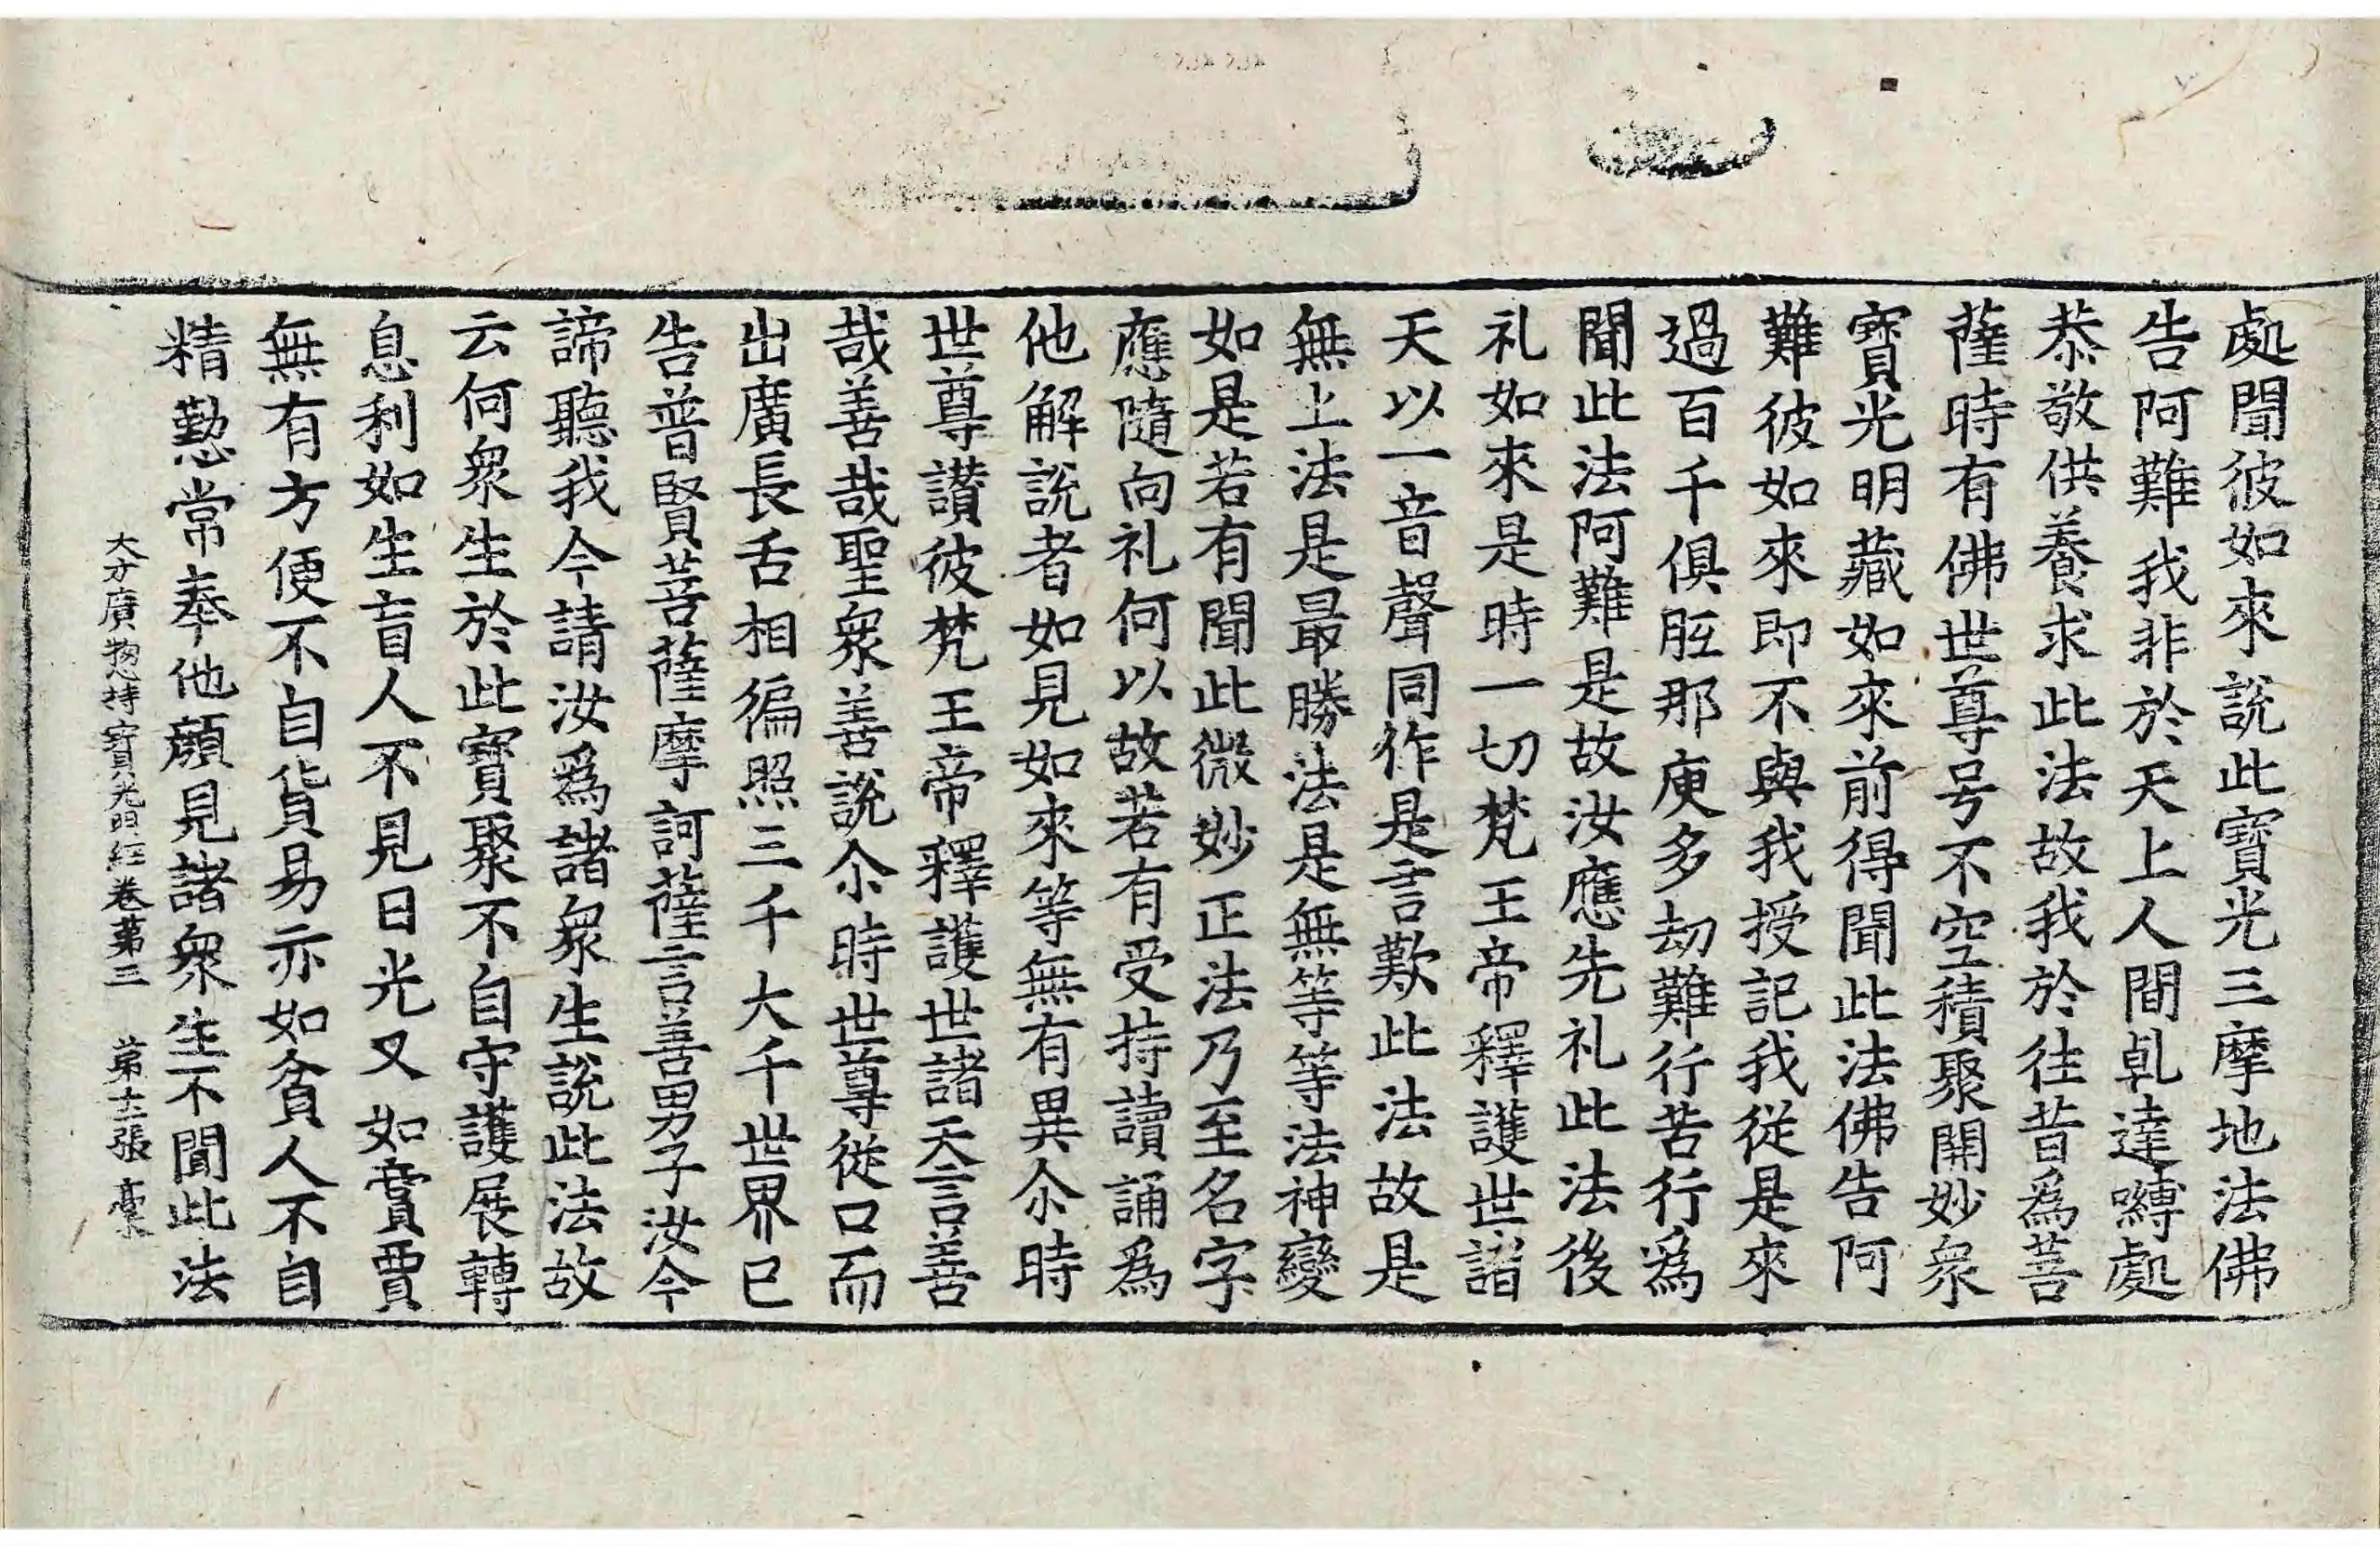 處聞彼如來說此寶光三摩地法佛
告阿難我非於天上人間乹達嚩處
恭敬供養求此法故我於往昔為菩
薩時有佛世尊号不空積聚開妙衆
寶光明藏如來前得聞此法佛告阿
難彼如來即不與我授記我從是來
過百千俱胝那庾多劫難行苦行為
聞此法阿難是故汝應先礼此法後
礼如來是時一切梵王帝釋護世諸
天以一音聲同作是言歎此法故是
無上法是最勝法是無等等法神變
如是若有聞此微妙正法乃至名字
應隨向礼何以故若有受持讀誦為
他解說者如見如來等無有異尒時
世尊讚彼梵王帝釋護世諸天言善
哉善哉聖衆善說尒時世尊從口而
出廣長舌相徧照三千大千世界已
告普賢菩薩摩訶薩言善男子汝今
諦聽我今請汝為諸衆生說此法故
云何衆生於此寶聚不自守護展轉
息利如生盲人不見日光又如賣賈
無有方便不自貨易亦如貧人不自
精懃常奉他顔見諸衆生不聞此法
大方廣揔持寳光明經卷苐三 苐十二張